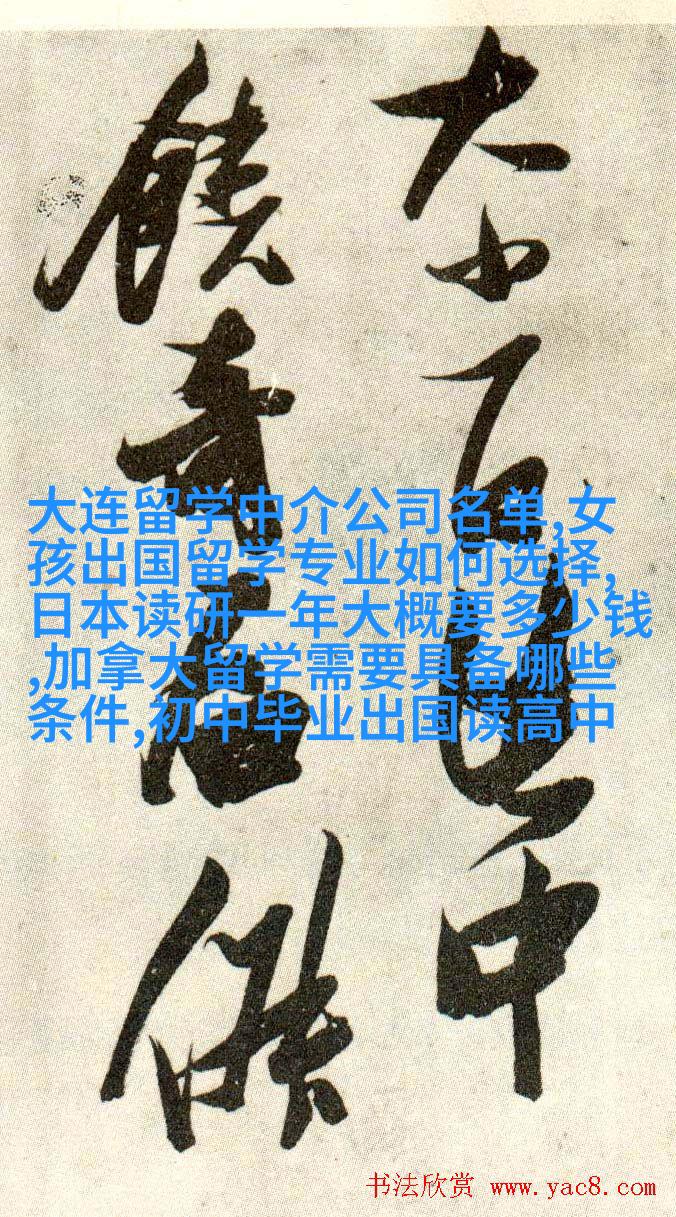 大小中
饒奇
大连留学中介公司名单,女
孩出国留学专业如何选择,
日本读研一年大概要多少钱
,加拿大留学需要具备哪些
条件,初中毕业出国读高中
书法欣赏 www.yac8.com